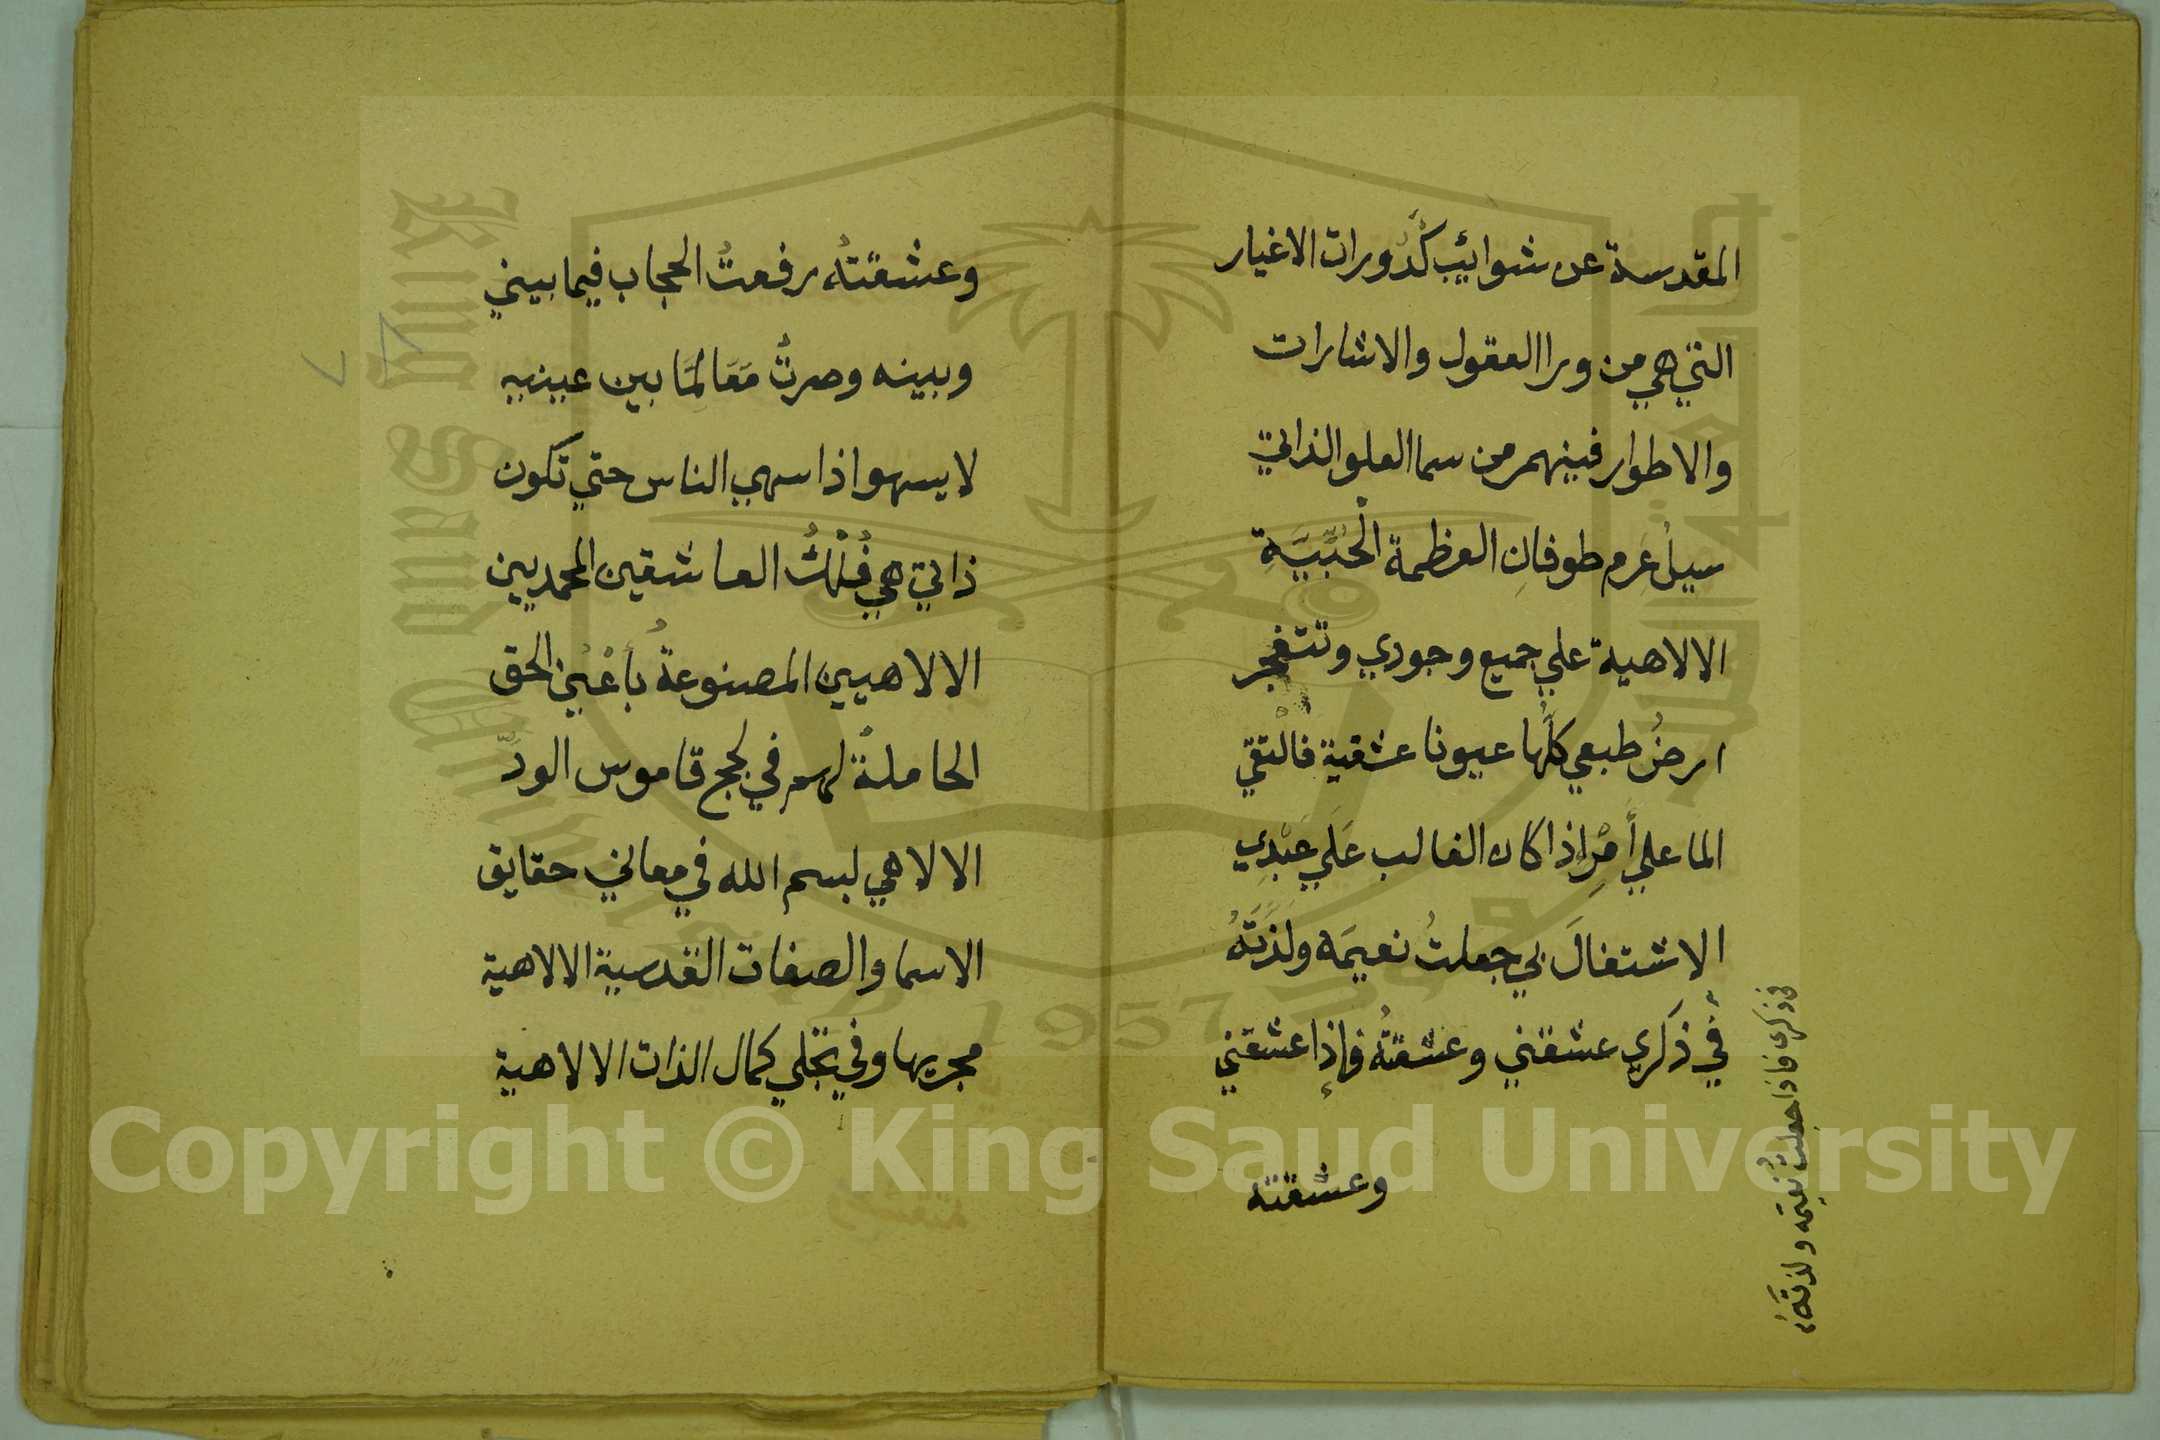 المقدسة عن شوايب كُدُورات الاغيار
التي هي من ورا العقول والاشارات
والاطوار فينهمر من سما العلو الذاتي
سيلُ عرم طوفانِ العظمة الحُبِّيَّةِ
الالاهية علي جميع وجودي وتتفجر
ارضُ طبعي كلُّها عيونا عشقية فالْتقي
الما علي أَمْرٍ اذا كان الغالب عَلَي عَبْدِي
الاشتغالَ بي جعلتُ نعيمَه ولذَّتَهُ
في ذكري عشقني وعشقتُه فإذا عشقني
وعشقته
في ذكري فاذا جعلتُ نعيمَه ولذتَهُ
وعشقتُه رفعتُ الحجاب فيما بيني
وبينه وصرتُ مَعَالِمًا بين عينيه
لا يسهو اذا سهي الناس حتي تكون
ذاتي هي فُلْكُ العاشقين المحمديين
الالاهيين المصنوعةُ بأَعْيُنِ الحق
الحاملةُ لهم في لجج قاموس الودِّ
الالاهي لبسم الله في معاني حقايق
الاسما والصفات القدسية الالاهية
مجريها وفي تجلي كمال الذات الالاهية
King Saud University
1957
Copyright © King Saud University